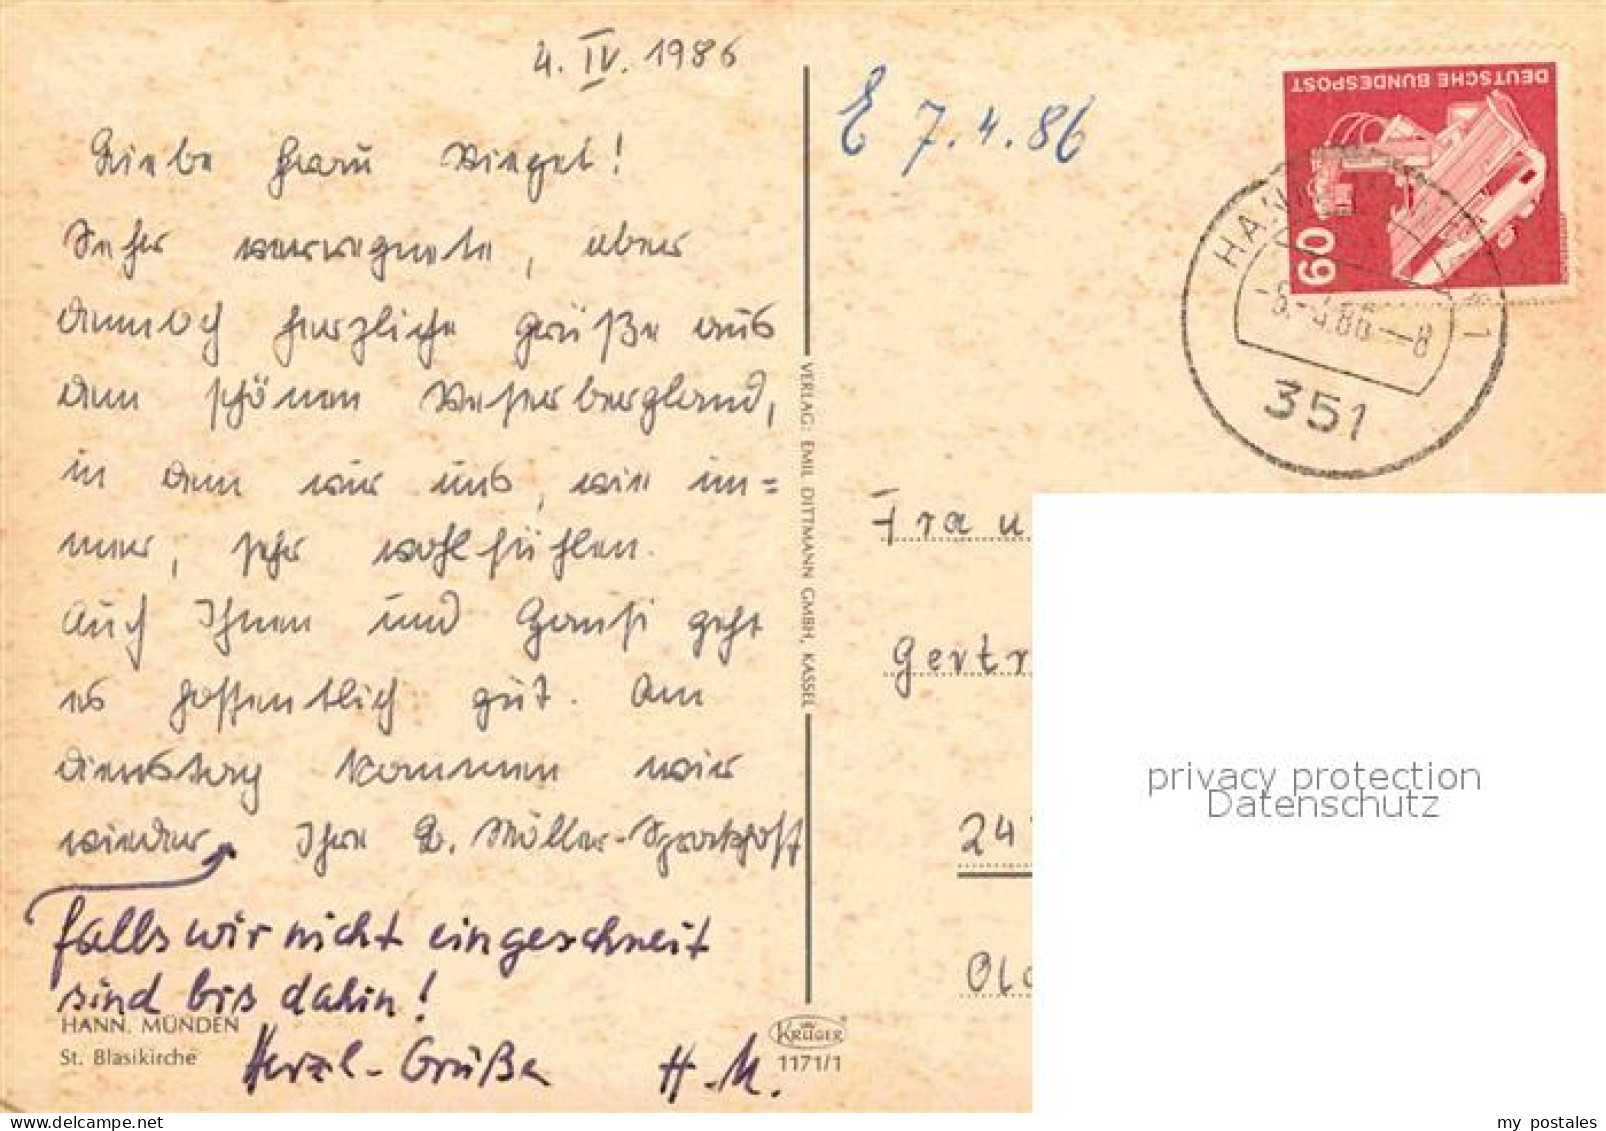 4. IV. 1986
Liebe Frau Viegel!
Sehr verregnete, aber
dennoch herzliche Grüße aus
dem schönen Weserbergland,
in dem wir uns, wie im=
mer, sehr wohlfühlen.
Auch Ihnen und Hansi geht
es hoffentlich gut. Am
Dienstag kommen wir
wieder Ihre L. Möller-Sprockhoff
falls wir nicht eingeschneit
sind bis dahin!
Herzl. Grüße H. M.
HANN. MÜNDEN
St. Blasikirche
VERLAG: EMIL DITTMANN GMBH, KASSEL
KRÜGER
1171/1
E 7.4.86
DEUTSCHE BUNDESPOST
60
86 - 8
351
Frau
Gertr
24
Old
privacy protection
Datenschutz
my postales